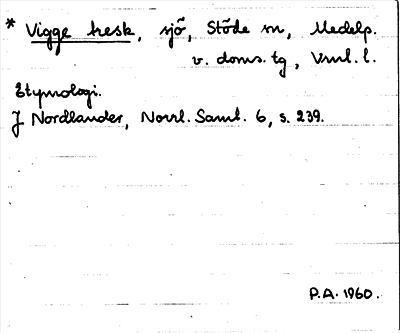 * Vigge tresk, sjö, Stöde sn, Medelp.
v. doms. tg, Vnrl. l.
Etymologi.
J Nordlander, Norrl. Saml. 6, s. 239.
P.A. 1960.